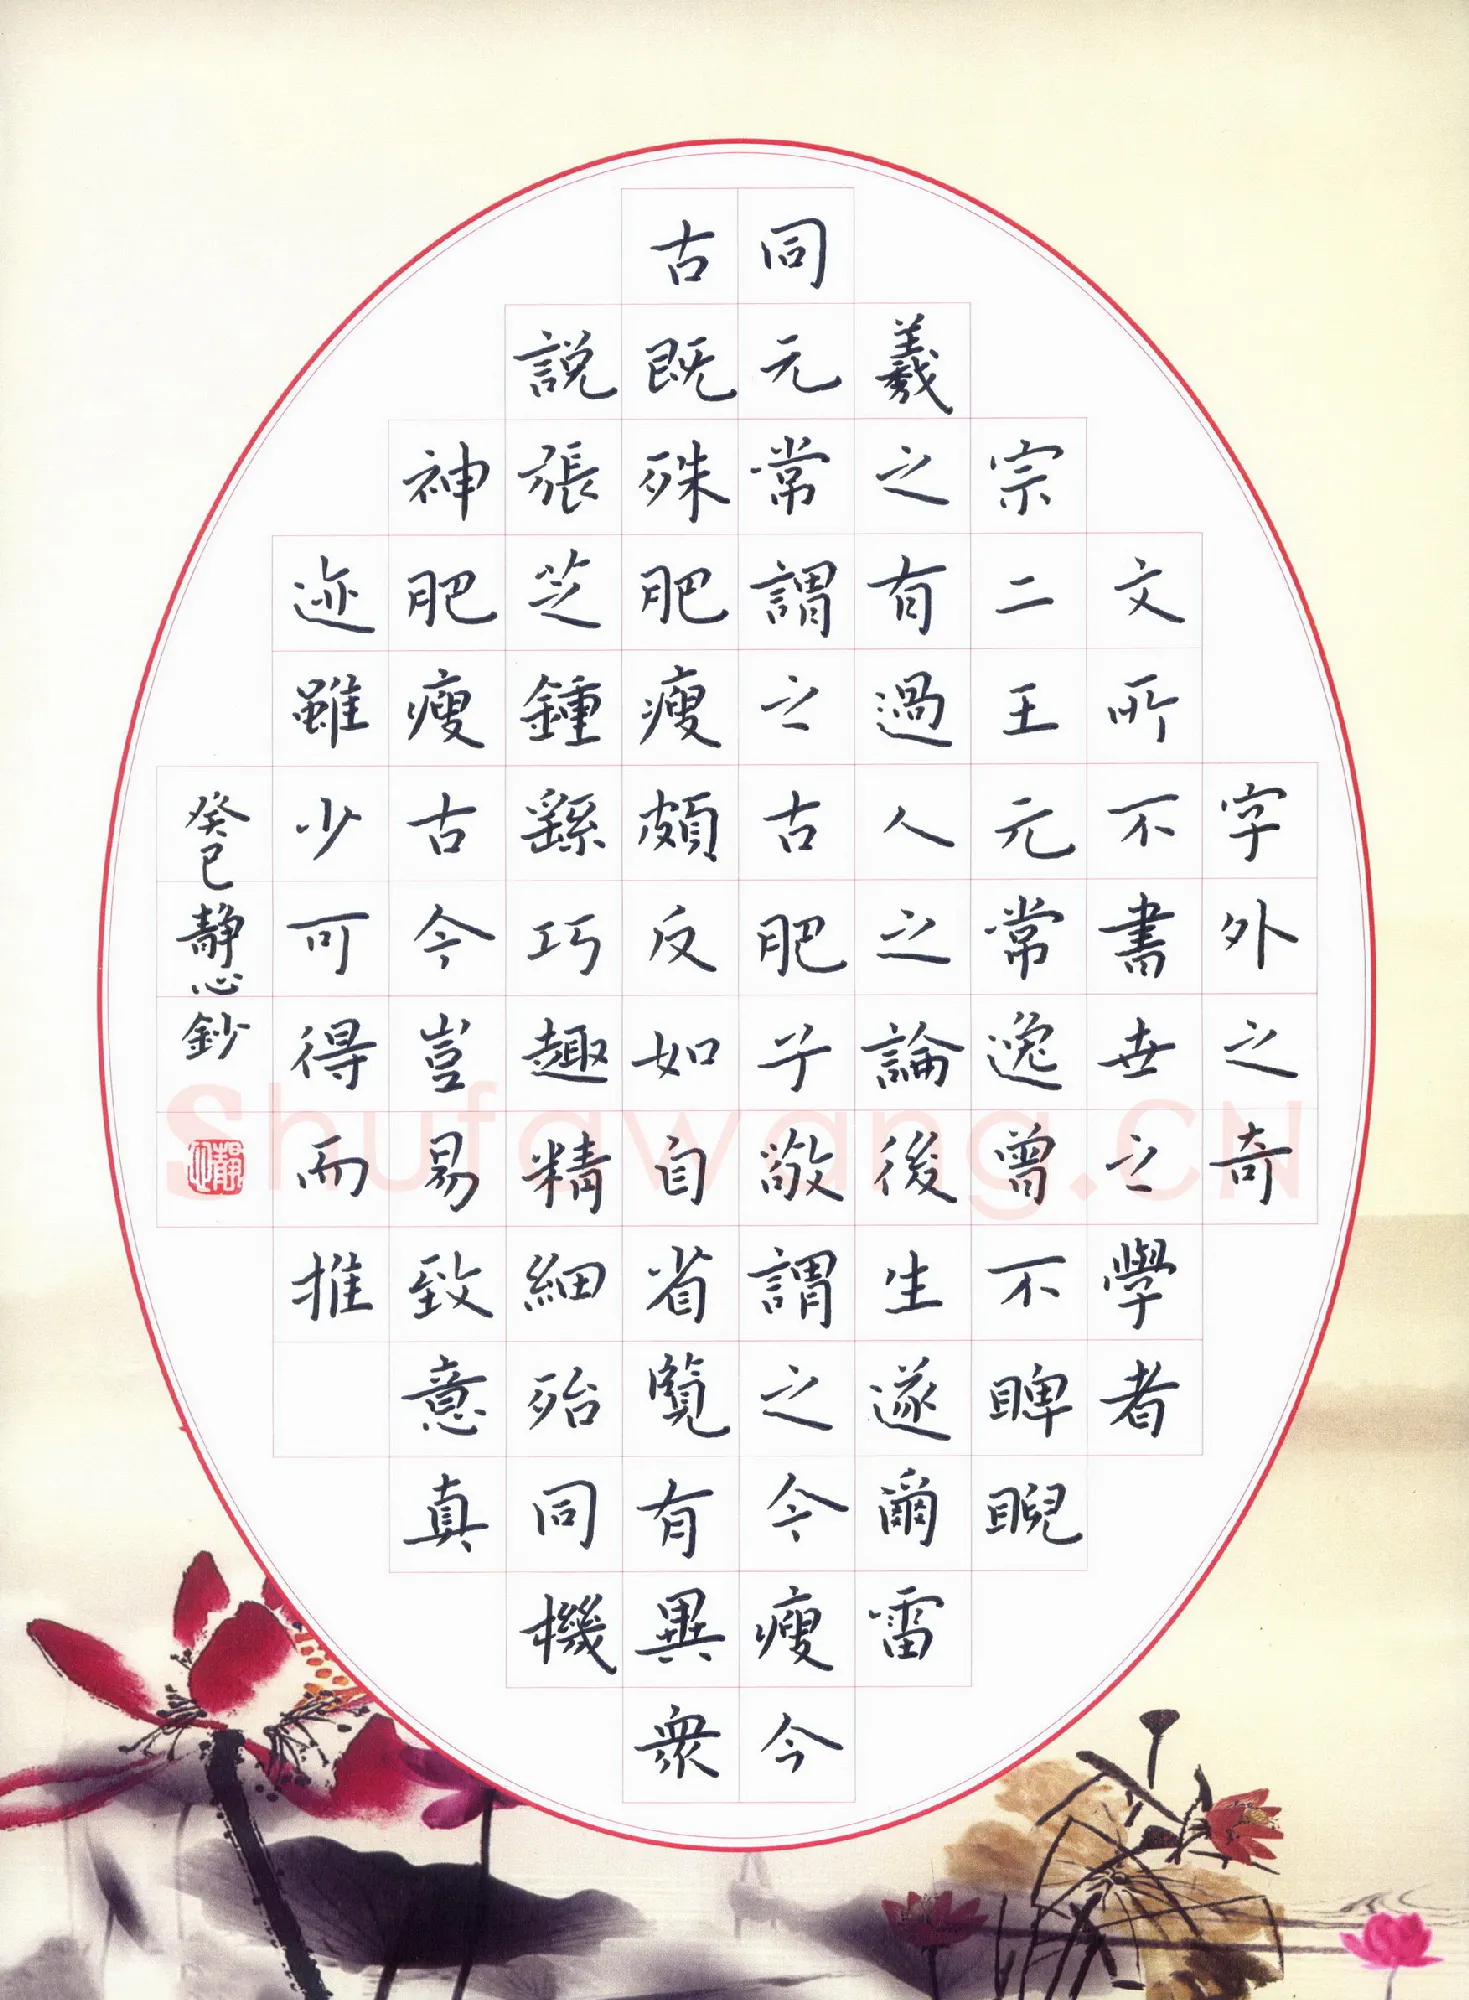 字外之奇
文所不書世之學者
宗二王元常逸曾不睥睨
羲之有過人之論後生遂爾雷
同元常謂之古肥子敬謂之今瘦今
古既殊肥瘦頗反如自省覽有異衆
說張芝鍾繇巧趣精細殆同機
神肥瘦古今豈易致意真
迹雖少可得而推
癸巳靜心鈔
Shufawang.CN